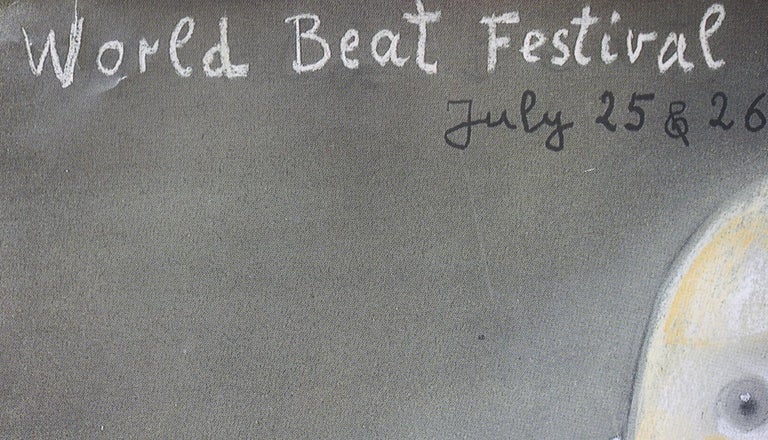 World Beat Festival
July 25 & 26